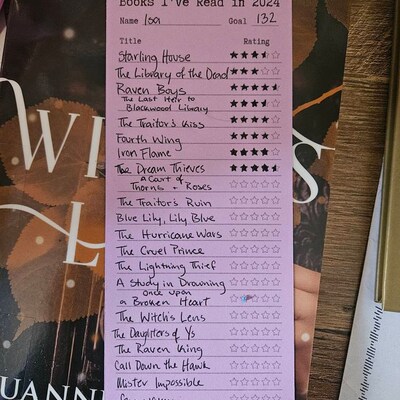 Books I've Read in 2024
Name Goal 132
Title Rating
Starling House
The Library of the Dead
Raven Boys
The Last Heir to
Blackwood Library
The Traitor's Kiss
Fourth Wing
Iron Flame
The Dream Thieves
A Court of
Thorns + Roses
The Traitor's Ruin
Blue Lily, Lily Blue
The Hurricane Wars
The Cruel Prince
The Lightning Thief
A Study in Drowning
Once Upon
a Broken Heart
The Witch's Lens
The Daughters of Ys
The Raven King
Call Down the Hawk
Mister Impossible
WI S
L
UANN